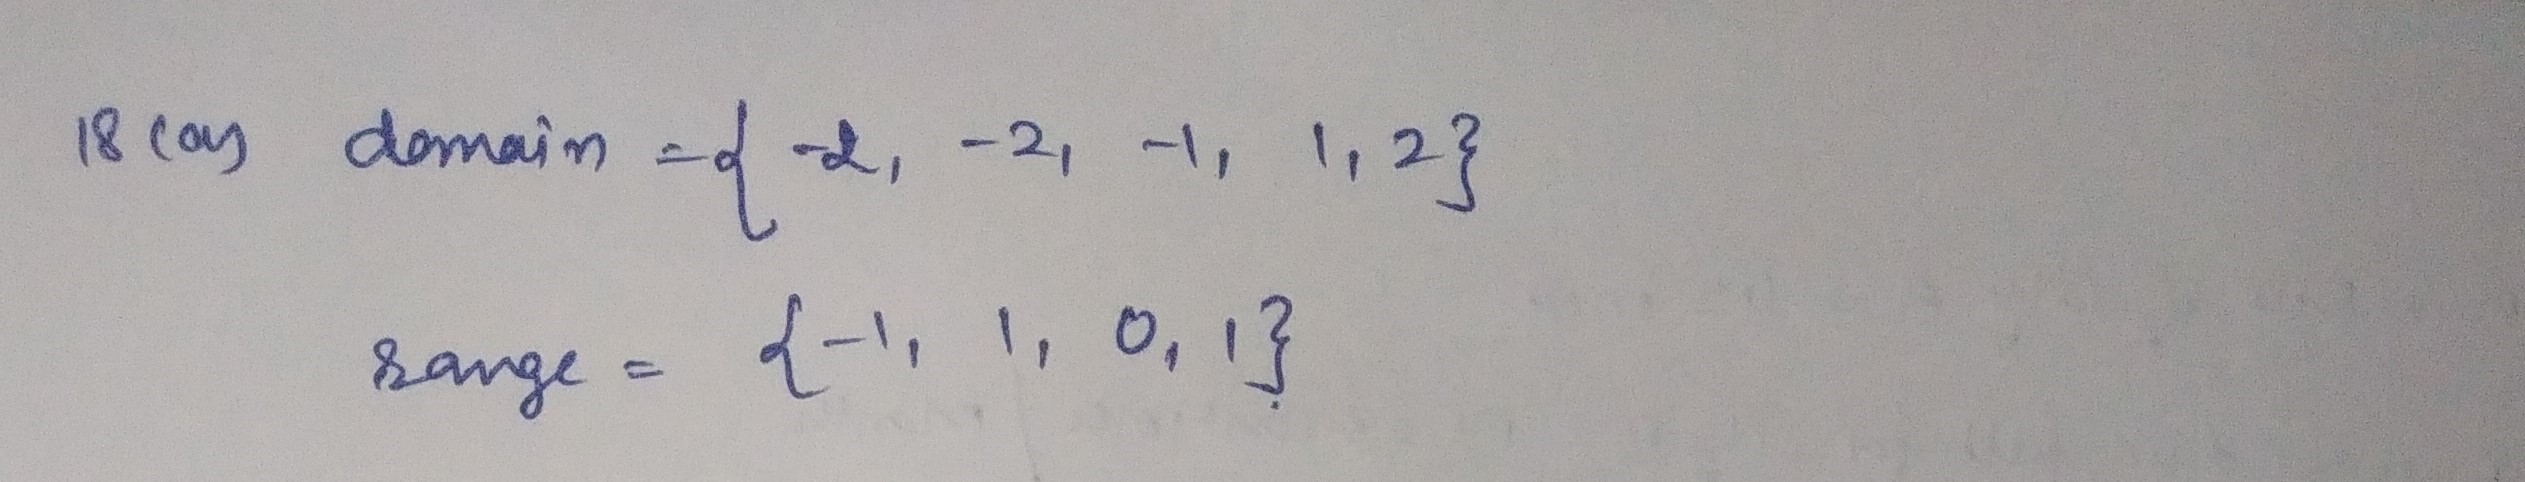 18 (a) domain = { -2, -2, -1, 1, 2}
range = {-1, 1, 0, 1}